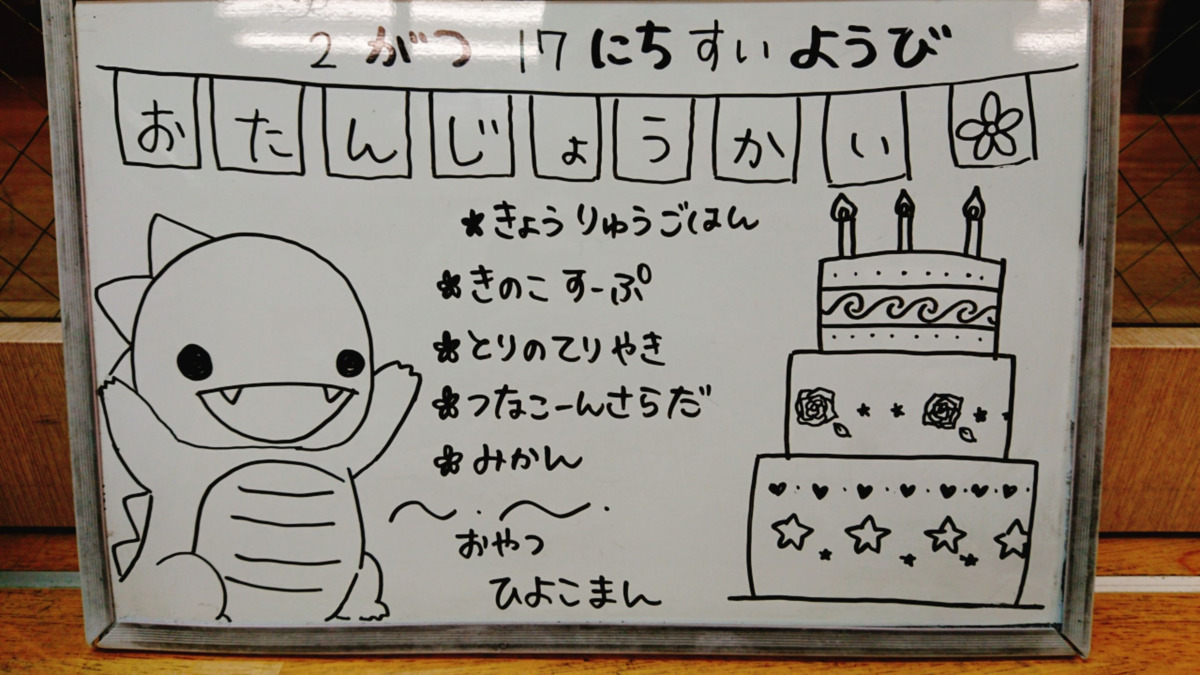 2 がつ 17 にち すいようび
おたんじょうかい
きょうりゅうごはん
きのこすーぷ
とりのてりやき
つなこーんさらだ
みかん
おやつ
ひよこまん